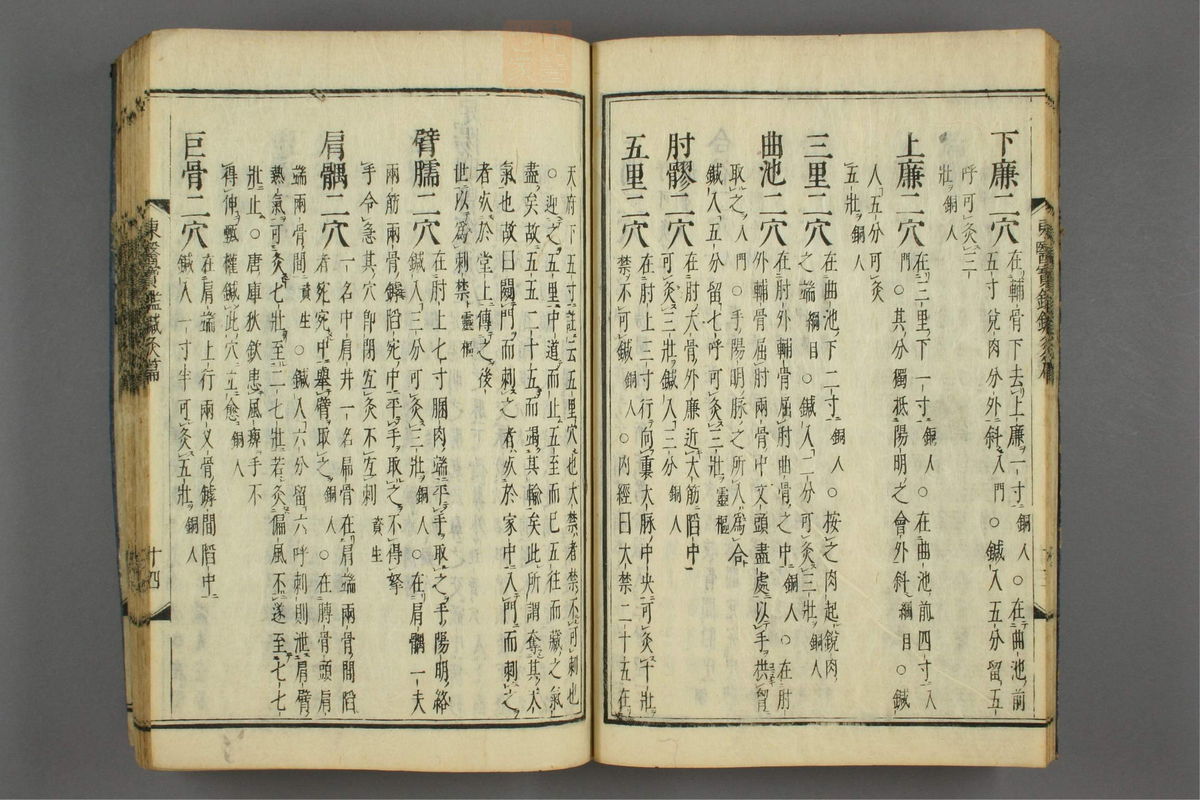 下廉二穴在輔骨下去上廉一寸銅人○在曲池前
五寸兌肉分外斜入門○鍼入五分留五
呼可灸三
壯銅人
上廉二穴在三里下一寸銅人○在曲池前四寸入
門○其分獨抵陽明之會外斜綱目○鍼
入五分可灸
五壯銅人
三里二穴在曲池下二寸銅人○按之肉起銳肉
之端綱目○鍼入二分可灸三壯銅人
曲池二穴在肘外輔骨屈肘曲骨之中銅人○在肘
外輔骨屈肘兩骨中文頭盡處以手拱胷
取之入門○手陽明脉之所入爲合
鍼入五分留七呼可灸三壯靈樞
肘髎二穴在肘大骨外廉近大筋陷中
可灸三壯鍼入三分銅人
五里二穴在肘上三寸行向裏大脉中央可灸十壯
禁不可鍼銅人○內經曰大禁二十五在
天府下五寸註云五里穴也大禁者禁不可刺也
○迎之五里中道而止五至而已五往而藏之氣
盡矣故五五二十五而竭其輸矣此所謂奪其天
氣也故曰闚門而刺之者死於家中入門而刺之
者死於堂上傳之後
世以爲刺禁靈樞
臂臑二穴在肘上七寸䐃肉端平手取之手陽明絡
鍼入三分可灸三壯銅人○在肩髃一夫
兩筋兩骨罅陷宛中平手取之不得拏
手令急其穴卽閉宜灸不宜刺資生
肩髃二穴一名中肩井一名扁骨在肩端兩骨間陷
者宛宛中舉臂取之銅人○在膊骨頭肩
端兩骨間資生○鍼入六分留六呼刺則泄肩臂
熱氣可灸七壯至二七壯若灸偏風不遂至七七
壯止○唐庫狄欽患風痺手不
得伸甄權鍼此穴立愈銅人
巨骨二穴在肩端上行兩叉骨罅間陷中
鍼入一寸半可灸五壯銅人
東醫寶鑑鍼灸篇
十四